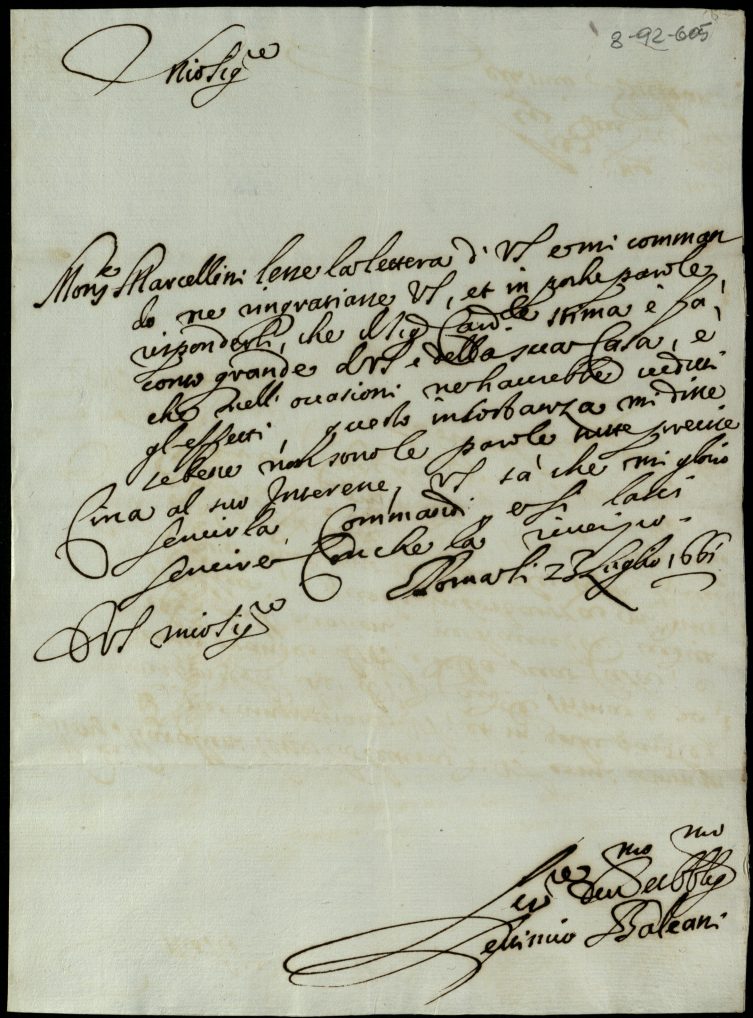 8-92-605
Mio Sig.re
Mons.re Marcellini lesse la lettera di VS e mi comman
dò ne ringratiasse VS, et in poche parole
risponderli, che il Sig. Card.le stima e fà
conto grande di VS e della sua Casa, e
che nell'occasioni ne haurebbe veduti
gl'effetti, questo in sostanza mi disse
sebene non sono le parole tutte precise
Circa al suo Interesse, VS sà che mi glorio
seruirla, Commandi, e si lasci
seruire Con che la riuerisco.
Roma li 23 Luglio 1661
DVS mio Sig.re
Ser.re Deu.mo Obblig.mo
Settimio Baleani